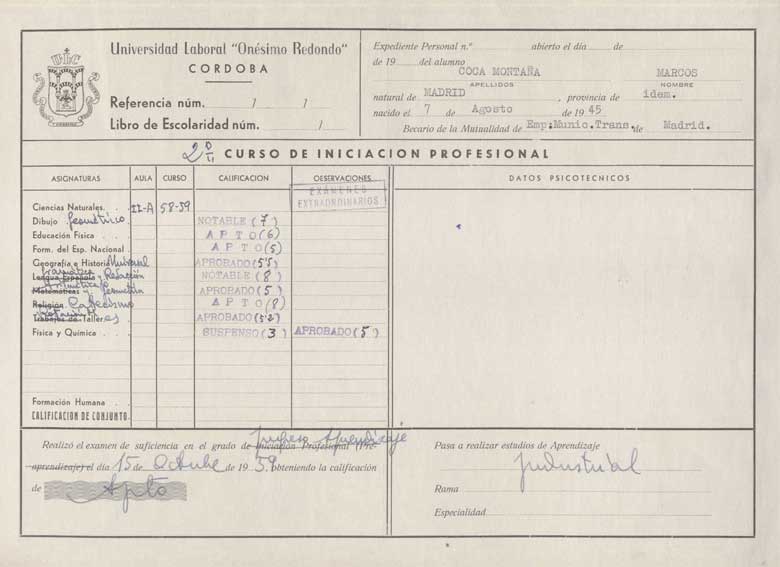 Universidad Laboral "Onésimo Redondo"
CORDOBA
Referencia núm. / /
Libro de Escolaridad núm. /
Expediente Personal n.º abierto el día de
de 19 del alumno
COCA MONTAÑA MARCOS
APELLIDOS NOMBRE
natural de MADRID, provincia de idem.
nacido el 7 de Agosto de 1945
Becario de la Mutualidad de Emp;Munic.Trans. de Madrid.
2º CURSO DE INICIACION PROFESIONAL
ASIGNATURAS AULA CURSO CALIFICACION OBSERVACIONES DATOS PSICOTECNICOS
EXÁMENES
EXTRAORDINARIOS
Ciencias Naturales. . . II-A 58-59
Dibujo Geométrico NOTABLE (7)
Educación Física . . APTO (6)
Form. del Esp. Nacional APTO (5)
Geografía e Historia Universal APROBADO (5'5)
Gramática
Lengua Española y Redacción NOTABLE (8)
Aritmética
Matemáticas y Geometría APROBADO (5)
Religión Catecismo APTO (8)
Trabajos de Talleres APROBADO (5'2)
Física y Química . . SUSPENSO (3) APROBADO (5)
Formación Humana . .
CALIFICACION DE CONJUNTO.
Realizó el examen de suficiencia en el grado de Iniciación Profesional (Pre-
Ingreso Aprendizaje
aprendizaje) el día 15 de Octubre de 1959 obteniendo la calificación
de Apto
Pasa a realizar estudios de Aprendizaje
Industrial
Rama
Especialidad